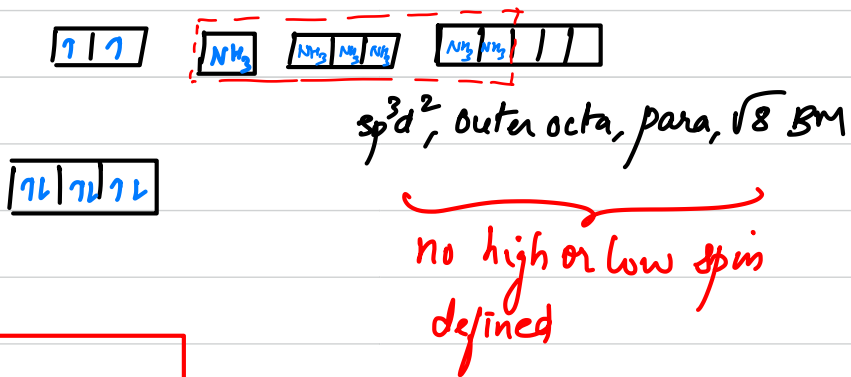 ↿ | ↿ NH₃ NH₃ NH₃ NH₃ NH₃ NH₃
sp³d², outer octa, para, √8 BM
↿⇂ ↿⇂ ↿⇂
no high or low spin
defined